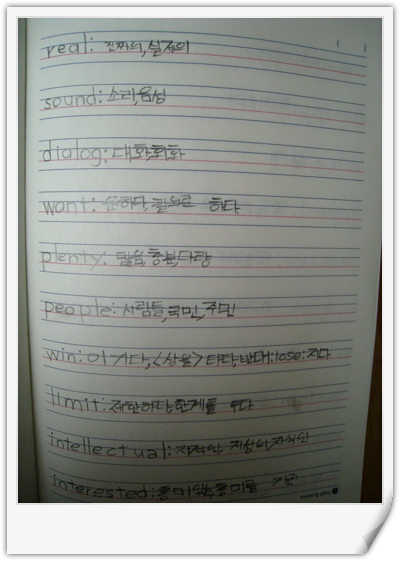 real: 진짜의, 실제의 ( )
sound: 소리, 음성
dialog: 대화, 회화
want: 원하다, 필요로 하다
plenty: 많음, 충분, 다량
people: 사람들, 국민, 주민
win: 이기다, <상을> 타다, 반대: lose: 지다
limit: 제한하다, 한계를 두다
intellectual: 지적인, 지성의, 지식인
interested: 흥미 있는, 흥미를 가진